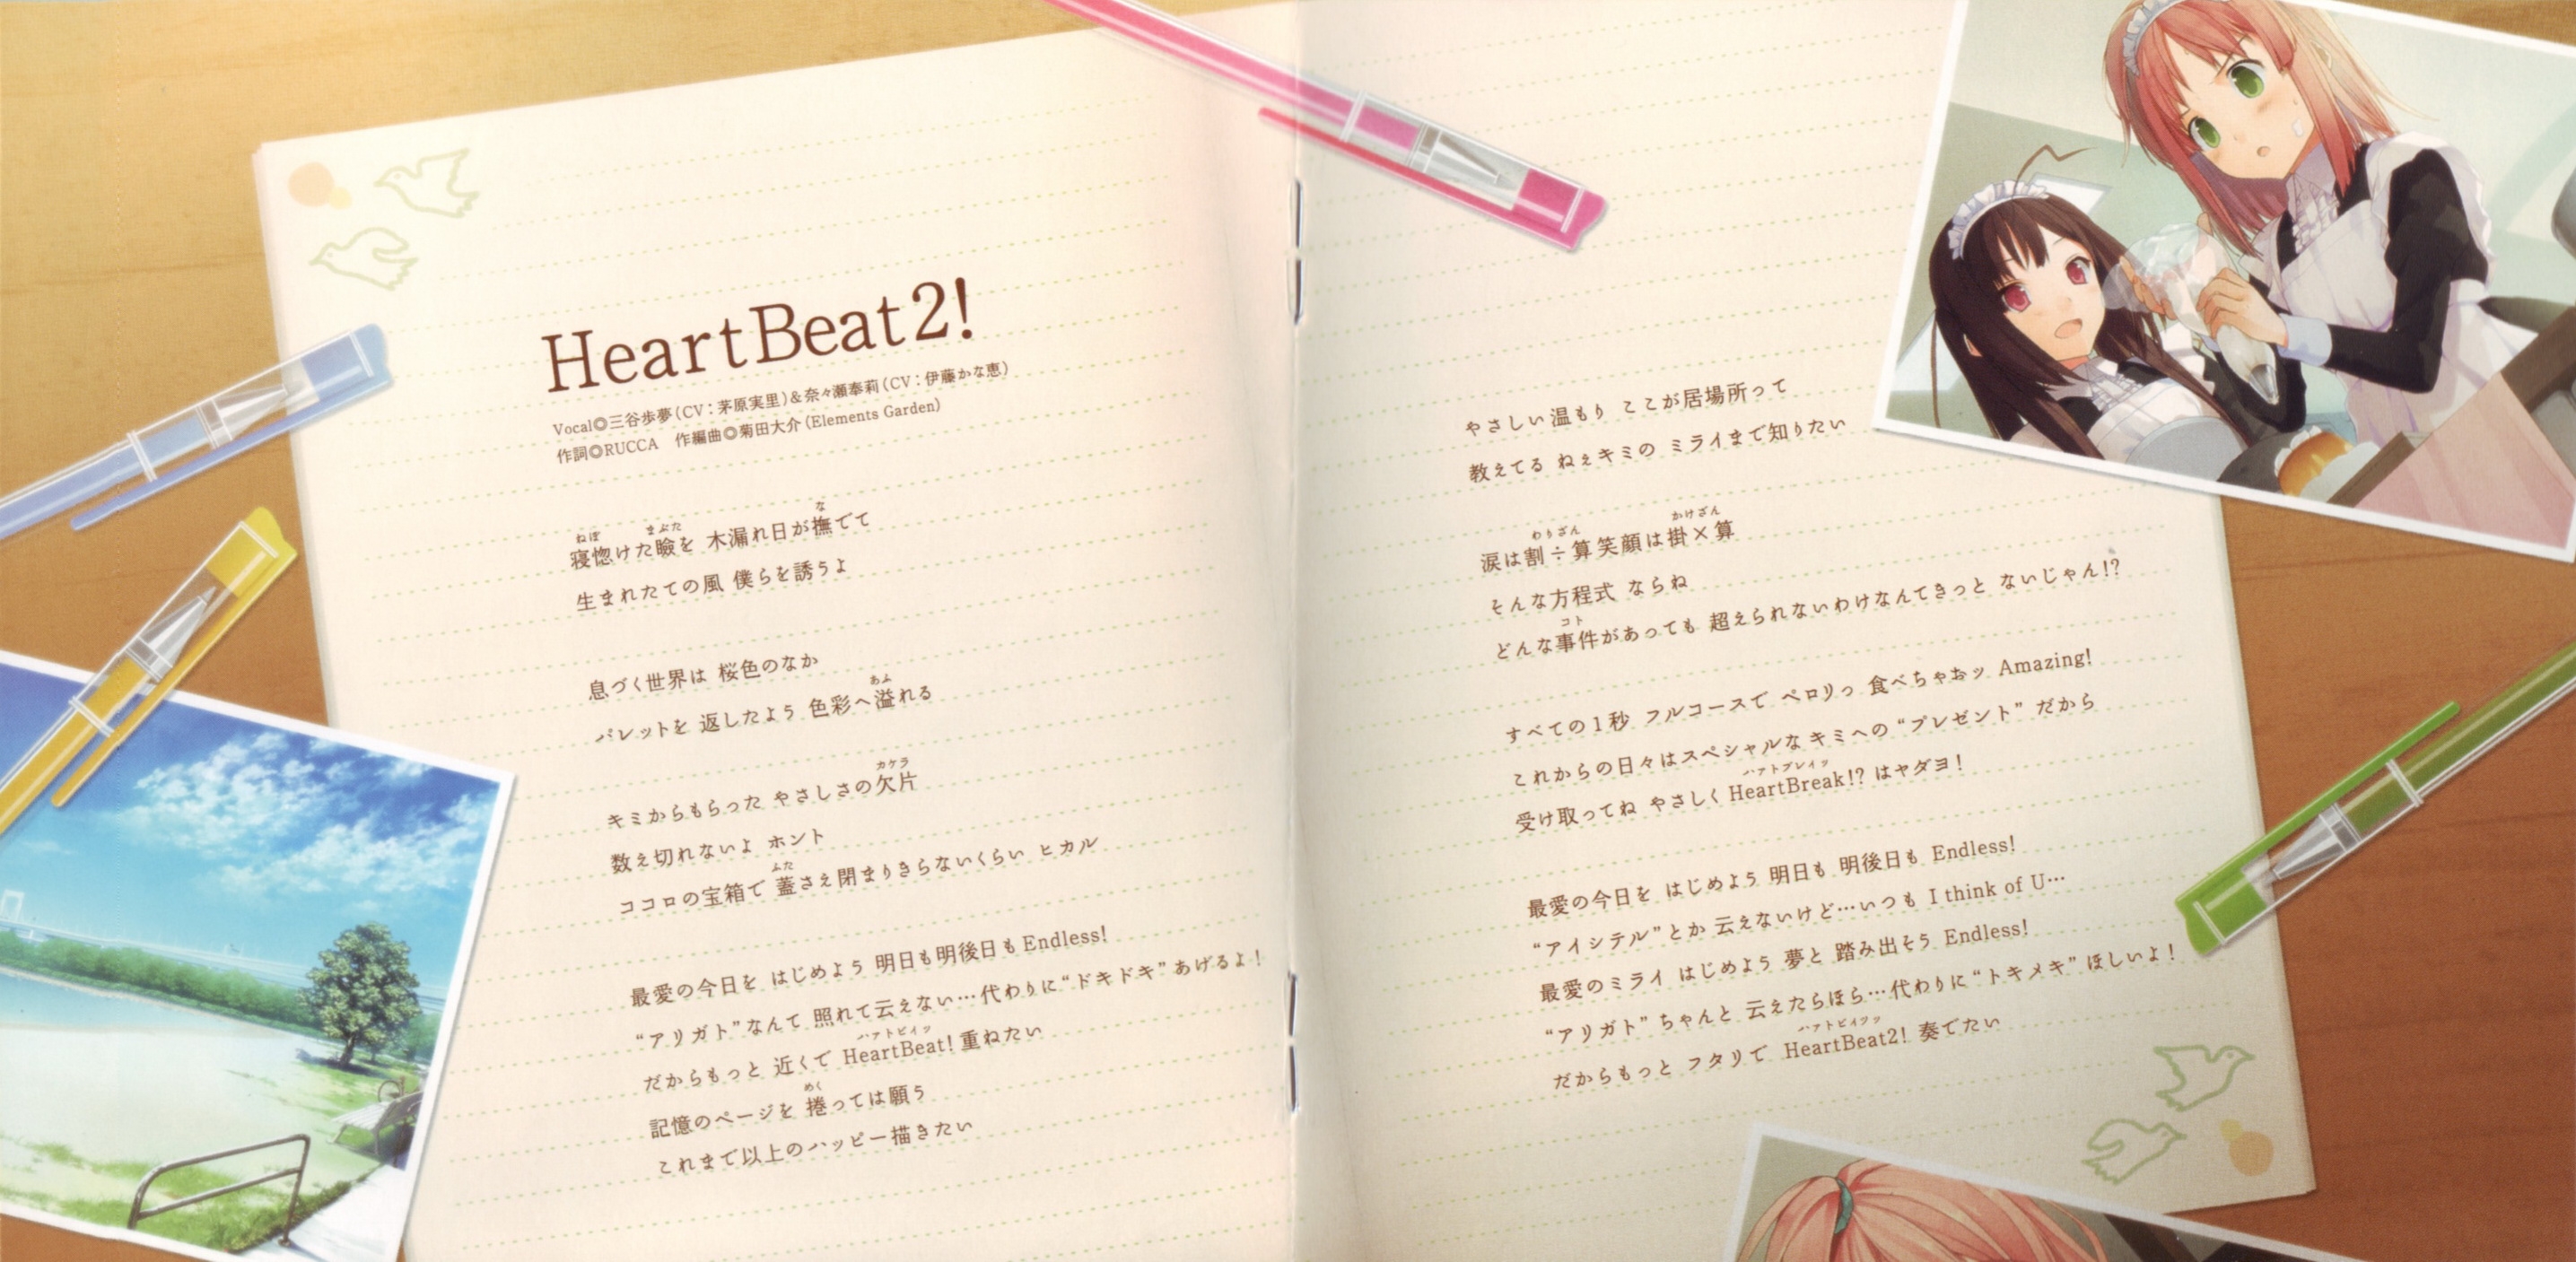 HeartBeat2!
Vocal◎三谷歩夢（CV：茅原実里）＆奈々瀬奉莉（CV：伊藤かな恵）
作詞◎RUCCA　作編曲◎菊田大介（Elements Garden）
寝惚けた瞼を 木漏れ日が撫でて
生まれたての風 僕らを誘うよ
息づく世界は 桜色のなか
パレットを 返したよう 色彩へ溢れる
キミからもらった やさしさの欠片
数え切れないよ ホント
ココロの宝箱で 蓋さえ閉まりきらないくらい ヒカル
最愛の今日を はじめよう 明日も明後日もEndless!
“アリガト”なんて 照れて云えない…代わりに“ドキドキ”あげるよ！
だからもっと 近くで HeartBeat! 重ねたい
記憶のページを 捲っては願う
これまで以上のハッピー描きたい
やさしい温もり ここが居場所って
教えてる ねぇキミの ミライまで知りたい
涙は割÷算笑顔は掛×算
そんな方程式 ならね
どんな事件があっても 超えられないわけなんてきっと ないじゃん!?
すべての1秒 フルコースで ペロリっ 食べちゃおッ Amazing!
これからの日々はスペシャルな キミへの“プレゼント” だから
受け取ってね やさしくHeartBreak!? はヤダヨ！
最愛の今日を はじめよう 明日も 明後日も Endless!
“アイシテル”とか 云えないけど…いつも I think of U…
最愛のミライ はじめよう 夢と 踏み出そう Endless!
“アリガト” ちゃんと 云えたらほら…代わりに“トキメキ” ほしいよ！
だからもっと フタリで HeartBeat2! 奏でたい